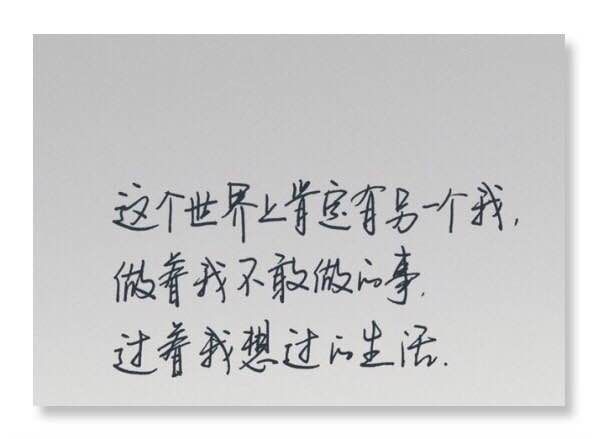 这个世界上肯定有另一个我,
做着我不敢做的事.
过着我想过的生活.